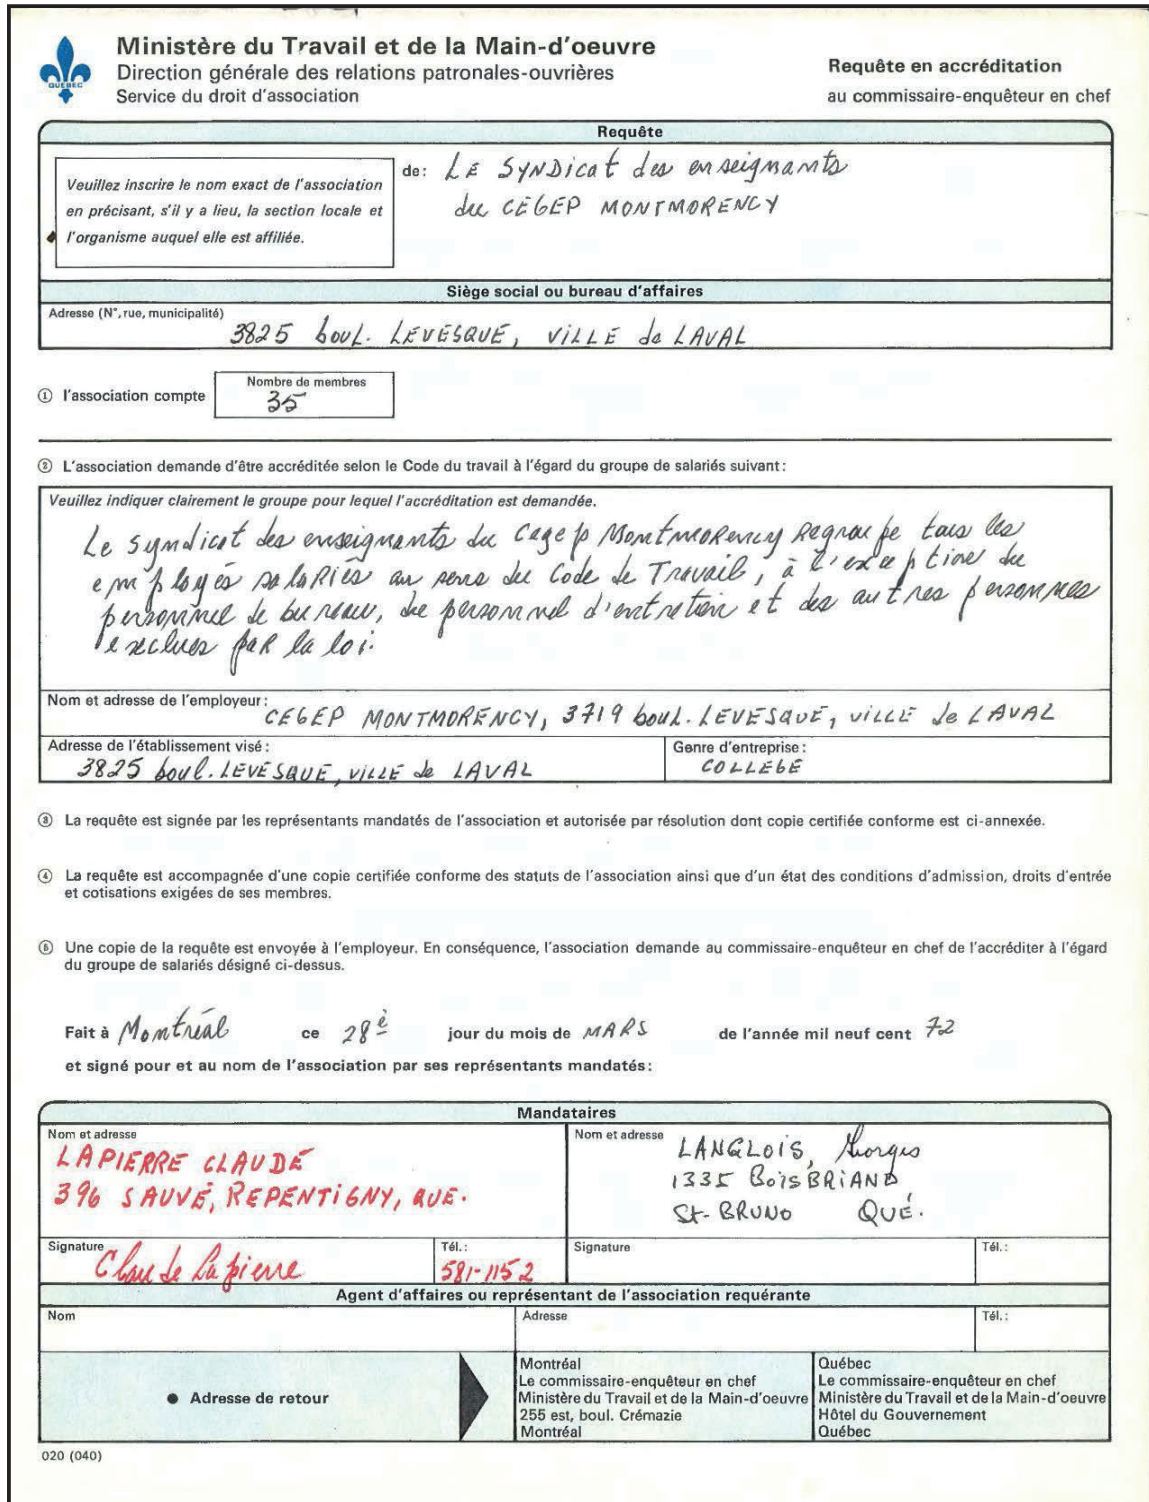 QUÉBEC
Ministère du Travail et de la Main-d'oeuvre
Direction générale des relations patronales-ouvrières
Service du droit d'association
Requête en accréditation
au commissaire-enquêteur en chef
Requête
Veuillez inscrire le nom exact de l'association
en précisant, s'il y a lieu, la section locale et
l'organisme auquel elle est affiliée.
de: LE SYNDicat des enseignants
du CÉGEP MONTMORENCY
Siège social ou bureau d'affaires
Adresse (N°, rue, municipalité)
3825 boul. LEVESQUE, VILLE de LAVAL
① l'association compte
Nombre de membres
35
② L'association demande d'être accréditée selon le Code du travail à l'égard du groupe de salariés suivant:
Veuillez indiquer clairement le groupe pour lequel l'accréditation est demandée.
Le syndicat des enseignants du Cegep MontmoRency Regroupe tous les
employés salaRiés au sens du Code de Travail, à l'exception du
personnel de bureau, du personnel d'entretien et des autres personnes
exclues paR la loi.
Nom et adresse de l'employeur:
CEGEP MONTMORENCY, 3719 boul. LEVESQUE, VILLE de LAVAL
Adresse de l'établissement visé:
3825 boul. LEVESQUE, VILLE de LAVAL
Genre d'entreprise:
COLLEGE
③ La requête est signée par les représentants mandatés de l'association et autorisée par résolution dont copie certifiée conforme est ci-annexée.
④ La requête est accompagnée d'une copie certifiée conforme des statuts de l'association ainsi que d'un état des conditions d'admission, droits d'entrée
et cotisations exigées de ses membres.
⑤ Une copie de la requête est envoyée à l'employeur. En conséquence, l'association demande au commissaire-enquêteur en chef de l'accréditer à l'égard
du groupe de salariés désigné ci-dessus.
Fait à Montréal ce 28è jour du mois de MARS de l'année mil neuf cent 72
et signé pour et au nom de l'association par ses représentants mandatés:
Mandataires
Nom et adresse
LAPIERRE CLAUDE
396 SAUVÉ, REPENTIGNY, QUE.
Nom et adresse
LANGLOIS, Georges
1335 BoisBRIAND
St-BRUNO QUÉ.
Signature
Claude Lapierre
Tél.:
581-1152
Signature
Tél.:
Agent d'affaires ou représentant de l'association requérante
Nom
Adresse
Tél.:
● Adresse de retour
Montréal
Le commissaire-enquêteur en chef
Ministère du Travail et de la Main-d'oeuvre
255 est, boul. Crémazie
Montréal
Québec
Le commissaire-enquêteur en chef
Ministère du Travail et de la Main-d'oeuvre
Hôtel du Gouvernement
Québec
020 (040)